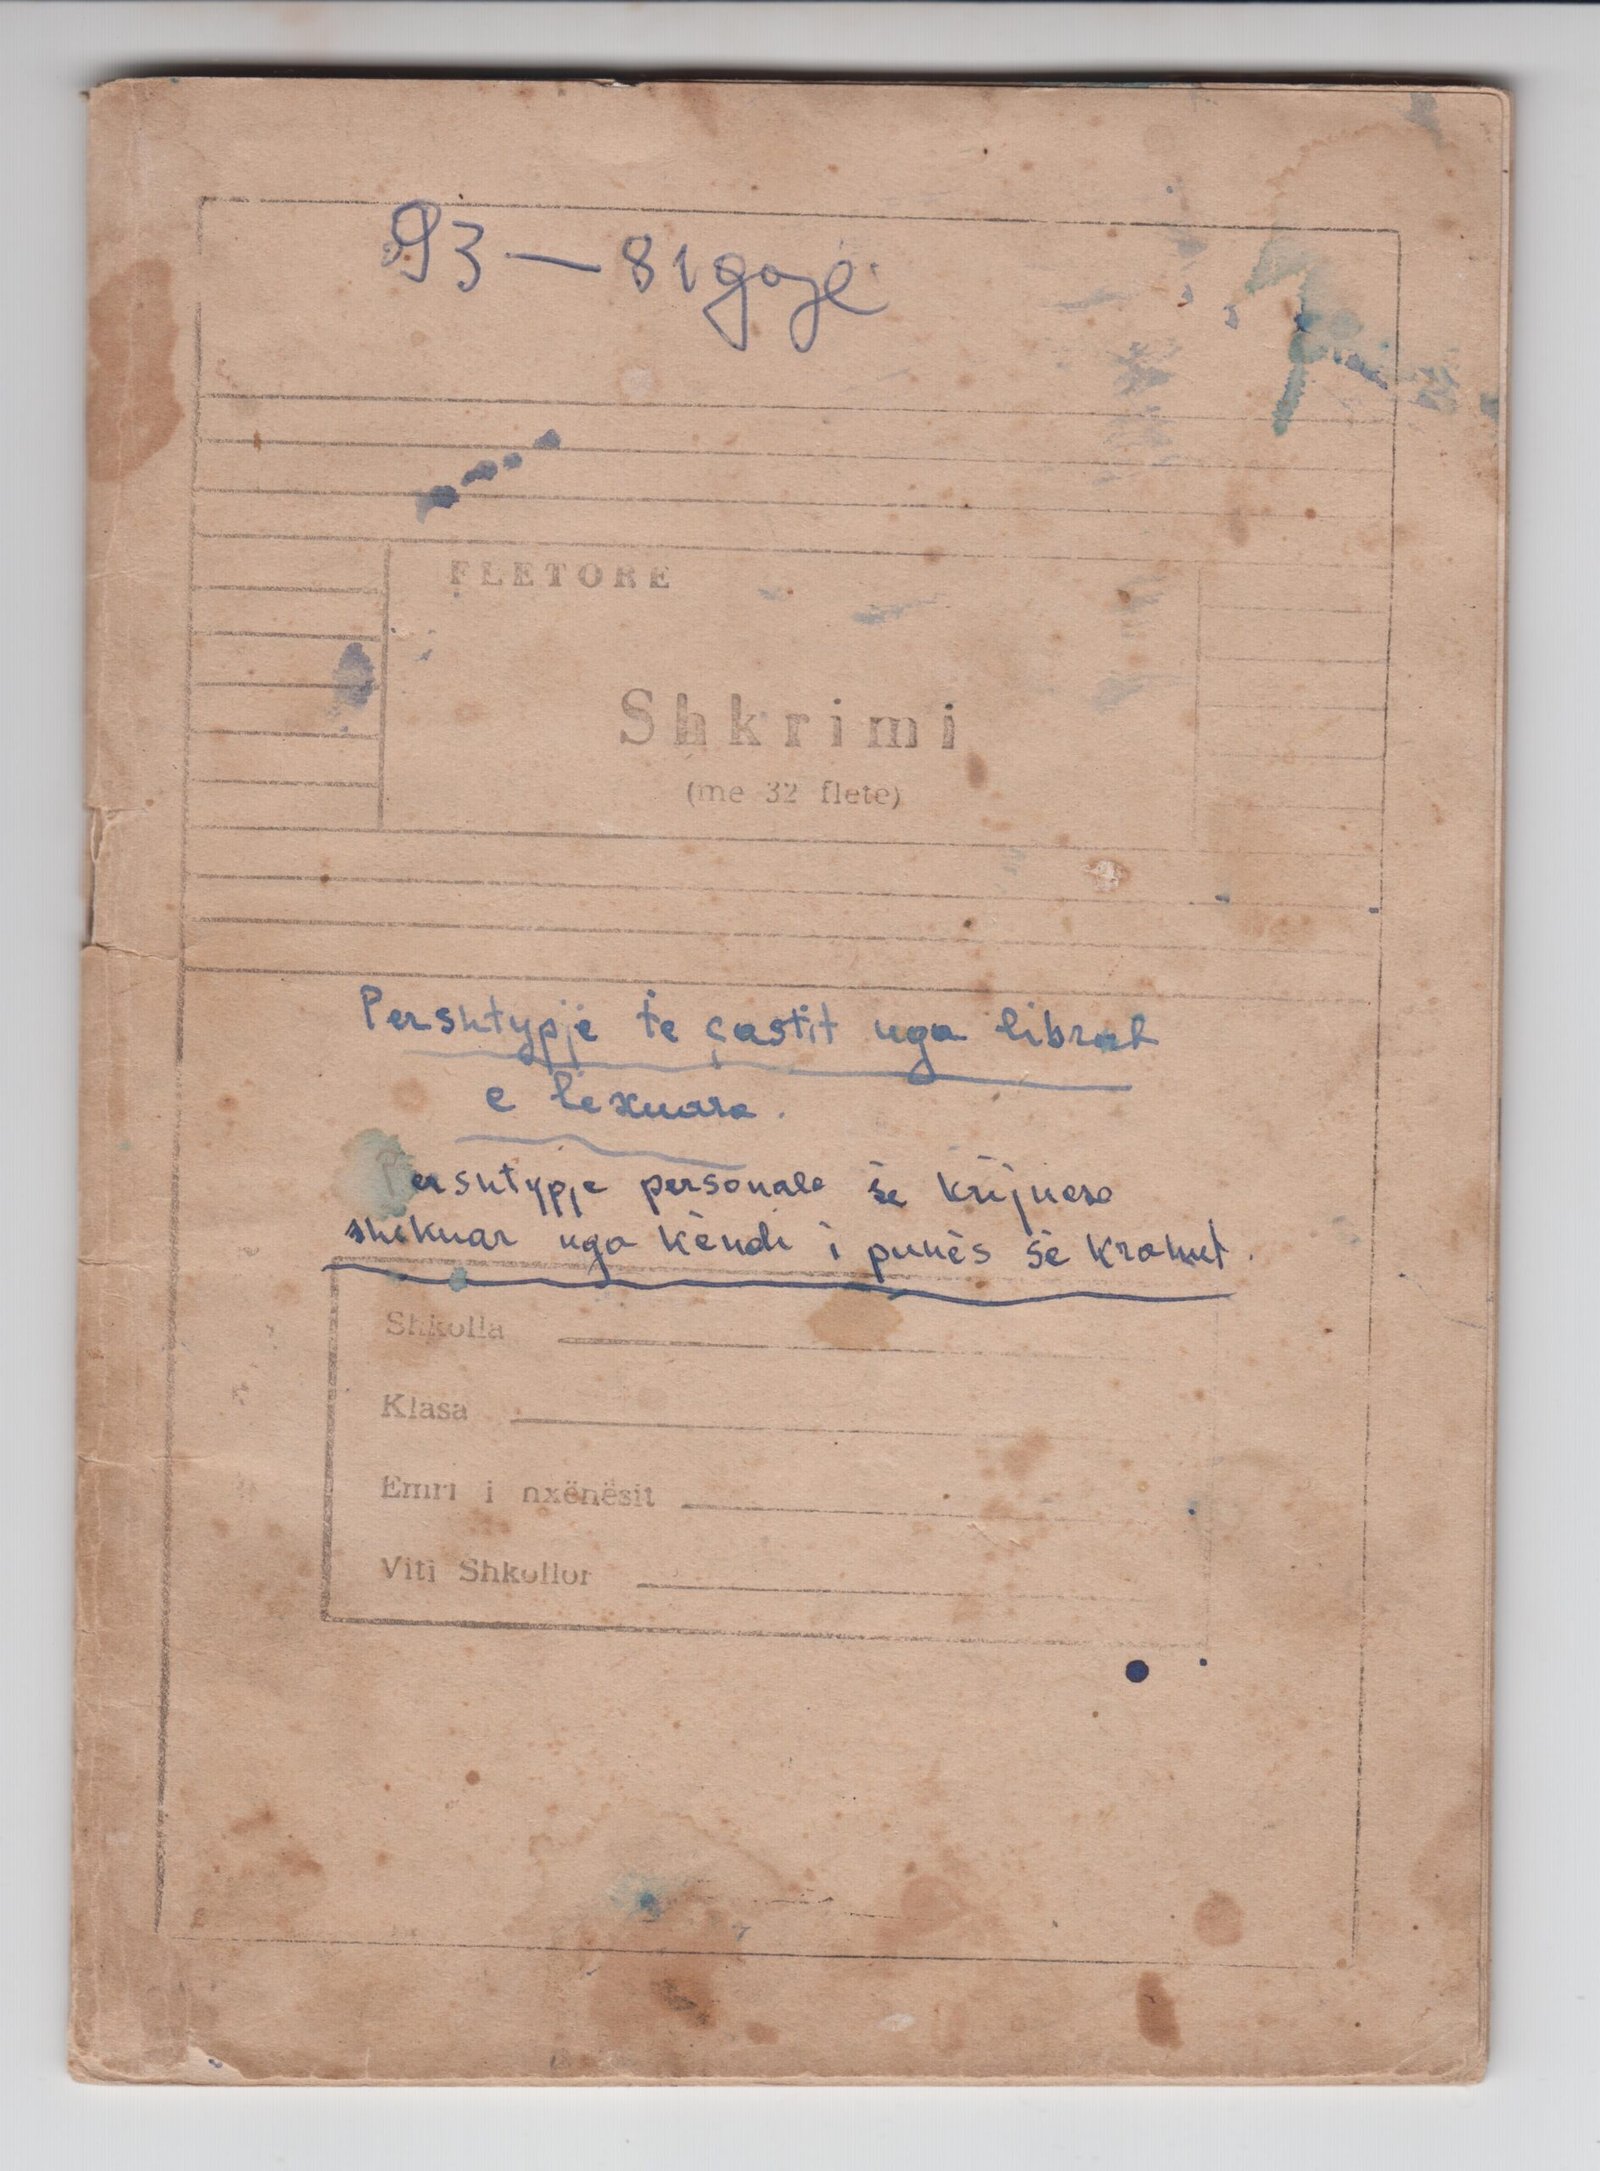 93 — 81 gojë
FLETORE
Shkrimi
(me 32 flete)
Pershtypje te çastit nga librat
e lexuara.
Pershtypje personale se krijuese
shikuar nga këndi i punës së krahut.
Shkolla
Klasa
Emri i nxënësit
Viti Shkollor
7